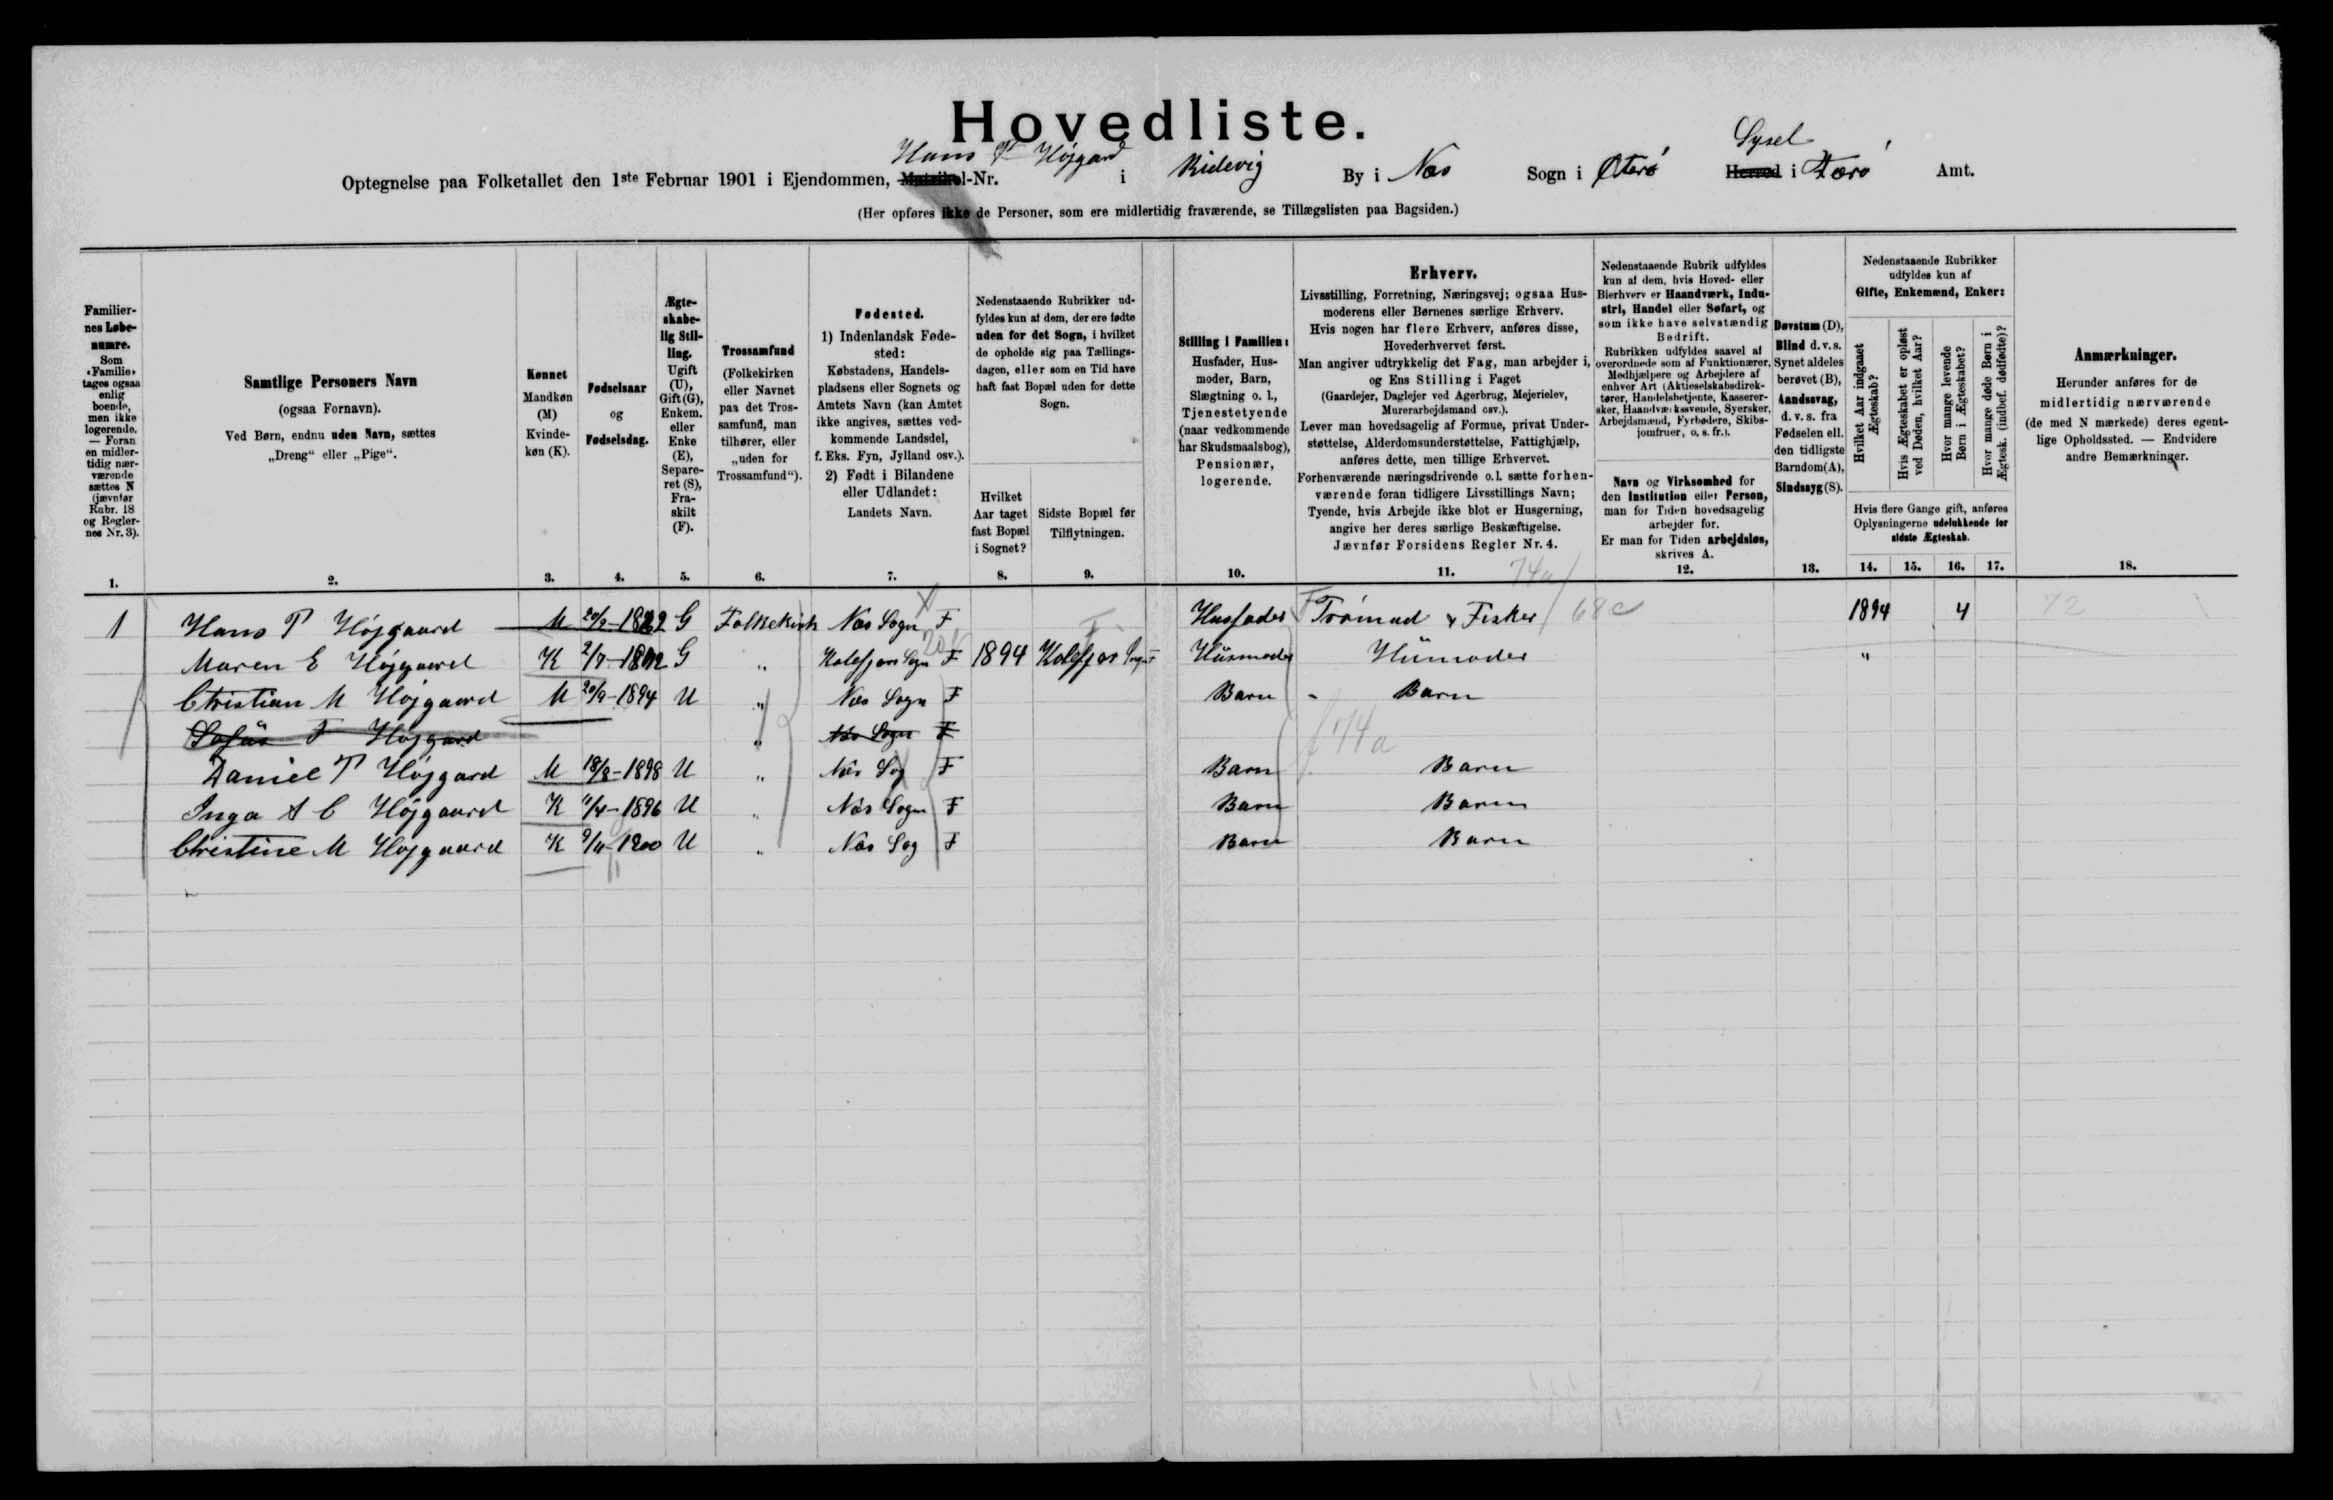 Hovedliste.
Optegnelse paa Folketallet den 1ste Februar 1901 i Ejendommen, Matrikel-Nr. Hans P Højgard i Ridevig By i Næs Sogn i Østerø Herred Sysel i Færø Amt.
(Her opføres ikke de Personer, som ere midlertidig fraværende, se Tillægslisten paa Bagsiden.)
Familier-
nes Løbe-
numre.
Som
»Familie»
tages ogsaa
enlig
boende,
men ikke
logerende.
— Foran
en midler-
tidig nær-
værende
sættes N
(jævnfør
Rubr. 18
og Regler-
nes Nr. 3).
1.
Samtlige Personers Navn
(ogsaa Fornavn).
Ved Børn, endnu uden Navn, sættes
„Dreng“ eller „Pige“.
2.
Kønnet
Mandkøn
(M)
Kvinde-
køn (K).
3.
Fødselsaar
og
Fødselsdag.
4.
Ægte-
skabe-
lig Stil-
ling.
Ugift
(U),
Gift (G),
Enkem.
eller
Enke
(E),
Separe-
ret (S),
Fra-
skilt
(F).
5.
Trossamfund
(Folkekirken
eller Navnet
paa det Tros-
samfund, man
tilhører, eller
„uden for
Trossamfund“).
6.
Fødested.
1) Indenlandsk Føde-
sted:
Købstadens, Handels-
pladsens eller Sognets og
Amtets Navn (kan Amtet
ikke angives, sættes ved-
kommende Landsdel,
f. Eks. Fyn, Jylland osv.).
2) Født i Bilandene
eller Udlandet:
Landets Navn.
7.
Nedenstaaende Rubrikker ud-
fyldes kun af dem, der ere fødte
uden for det Sogn, i hvilket
de opholde sig paa Tællings-
dagen, eller som en Tid have
haft fast Bopæl uden for dette
Sogn.
Hvilket
Aar taget
fast Bopæl
i Sognet?
8.
Sidste Bopæl før
Tilflytningen.
9.
Stilling i Familien:
Husfader, Hus-
moder, Barn,
Slægtning o. l.,
Tjenestetyende
(naar vedkommende
har Skudsmaalsbog),
Pensionær,
logerende.
10.
Erhverv.
Livsstilling, Forretning, Næringsvej; ogsaa Hus-
moderens eller Børnenes særlige Erhverv.
Hvis nogen har flere Erhverv, anføres disse,
Hovederhvervet først.
Man angiver udtrykkelig det Fag, man arbejder i,
og Ens Stilling i Faget
(Gaardejer, Daglejer ved Agerbrug, Mejerielev,
Murerarbejdsmand osv.).
Lever man hovedsagelig af Formue, privat Under-
støttelse, Alderdomsunderstøttelse, Fattighjælp,
anføres dette, men tillige Erhvervet.
Forhenværende næringsdrivende o.l. sætte forhen-
værende foran tidligere Livsstillings Navn;
Tyende, hvis Arbejde ikke blot er Husgerning,
angive her deres særlige Beskæftigelse.
Jævnfør Forsidens Regler Nr. 4.
11.
Nedenstaaende Rubrik udfyldes
kun af dem, hvis Hoved- eller
Bierhverv er Haandværk, Indu-
stri, Handel eller Søfart, og
som ikke have selvstændig
Bedrift.
Rubrikken udfyldes saavel af
overordnede som af Funktionærer,
Medhjælpere og Arbejdere af
enhver Art (Aktieselskabsdirek-
tører, Handelsbetjente, Kasserer-
sker, Haandværkssvende, Syersker,
Arbejdsmænd, Fyrbødere, Skibs-
jomfruer, o. s. fr.).
Navn og Virksomhed for
den Institution eller Person,
man for Tiden hovedsagelig
arbejder for.
Er man for Tiden arbejdsløs,
skrives A.
12.
Døvstum (D),
Blind d.v.s.
Synet aldeles
berøvet (B),
Aandssvag,
d. v. s. fra
Fødselen ell.
den tidligste
Barndom(A),
Sindssyg (S).
13.
Nedenstaaende Rubrikker
udfyldes kun af
Gifte, Enkemænd, Enker:
Hvilket Aar indgaaet
Ægteskab?
Hvis Ægteskabet er opløst
ved Døden, hvilket Aar?
Hvor mange levende
Børn i Ægteskabet?
Hvor mange døde Børn i
Ægtesk. (indbef. dødfødte)?
Hvis flere Gange gift, anføres
Oplysningerne udelukkende for
sidste Ægteskab.
14. 15. 16. 17.
Anmærkninger.
Herunder anføres for de
midlertidig nærværende
(de med N mærkede) deres egent-
lige Opholdssted. — Endvidere
andre Bemærkninger.
18.
74a
1 Hans P Højgaard M G Folkekirk Næs Sogn F Husfader Trømad & Fisker 68c 1894 4 72
Maren E Højgaard K G „ Kolefjørs Sogn F 1894 Kolefjør Sogn F Husmoder Husmoder „
Christian M Højgaard M 20/9-1894 U „ Næs Sogn F Barn - Barn
Sofus F Højgard „ Næs Sogn F
74a
Daniel P Højgard M 18/8-1898 U „ Næs Sog F Barn Barn
Inga A C Højgaard K 11/4-1896 U „ Næs Sogn F Barn Barn
Christine M Højgaard K 9/11-1900 U „ Næs Sog F Barn Barn